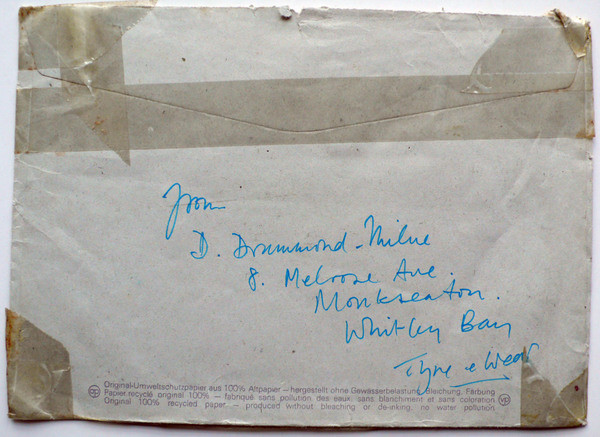 From
D. Drummond-Milne
8. Melrose Ave.
Monkseaton.
Whitley Bay
Tyne & Wear
Original-Umweltschutzpapier aus 100% Altpapier – hergestellt ohne Gewässerbelastung, Bleichung, Färbung
Papier recyclé original 100% – fabriqué sans pollution des eaux, sans blanchiment et sans coloration
Original 100% recycled paper – produced without bleaching or de-inking, no water pollution